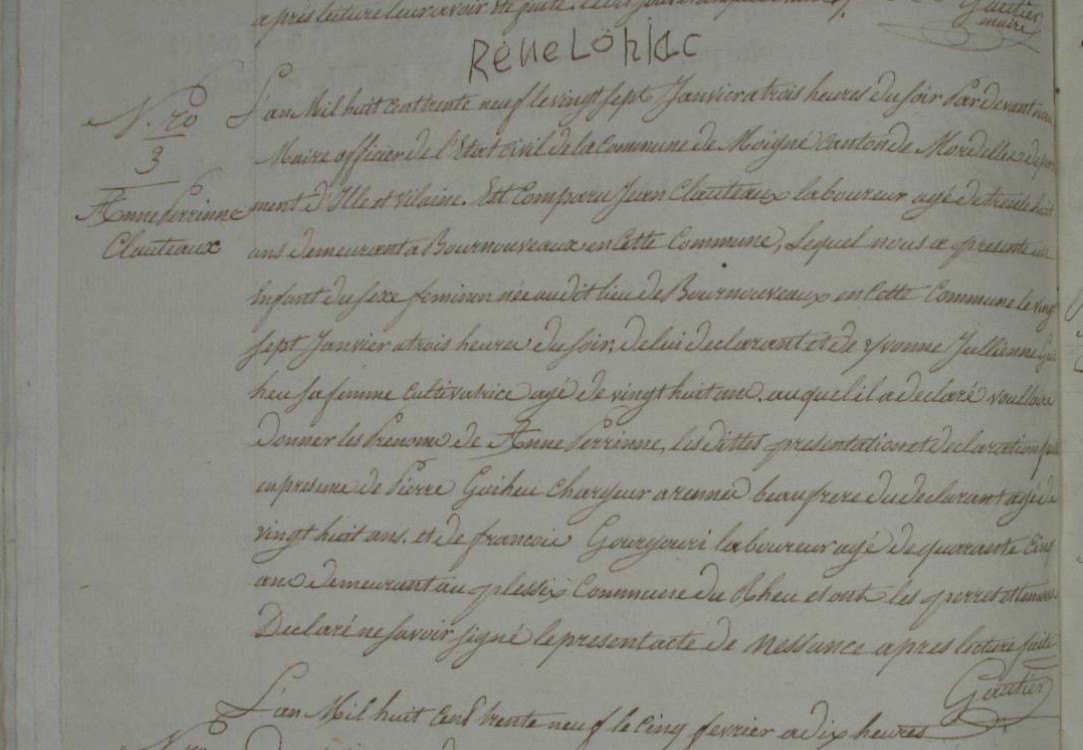 apres lecture leur avoir été faite.
Gautier
maire
Rene Lohiac
L'an Mil huit cent trente neuf le vingt sept Janvier a trois heures du soir Par devant nous
N.ro
3
Maire officier de l'Etat Civil de la Commune de Moigné Canton de Mordelles depar
Anne Perrinne
ment d'Ille et vilaine. Est Comparu Jean Clauteaux laboureur agé de trente huit
Clauteaux
ans demeurant a Bournouveaux en Cette Commune, Lequel nous a presenté un
Enfant du sexe feminin née audit lieu de Bournouveaux en Cette Commune le vingt
sept Janvier a trois heures du soir, de lui declarant et de Yvonne Jullienne Gui
heu sa femme Cultivatrice agé de vingt huit ans. auquel il a declaré voulloire
Donner les Prenoms de Anne Perrinne, les dittes presentation et declaration
en presence de Pierre Guiheu Chargeur a rennes beaufrere du declarant agé de
vingt huit ans. et de francois Gourgouri laboureur agé de quarante Cinq
ans demeurant au plessix Commune du Rheu et ont les perre et temoins
Declaré ne savoir signé le present acte de Nessance apres lecture faite
Gautier
L'an Mil huit Cent trente neuf le Cinq fevrier a dix heures
N.ro